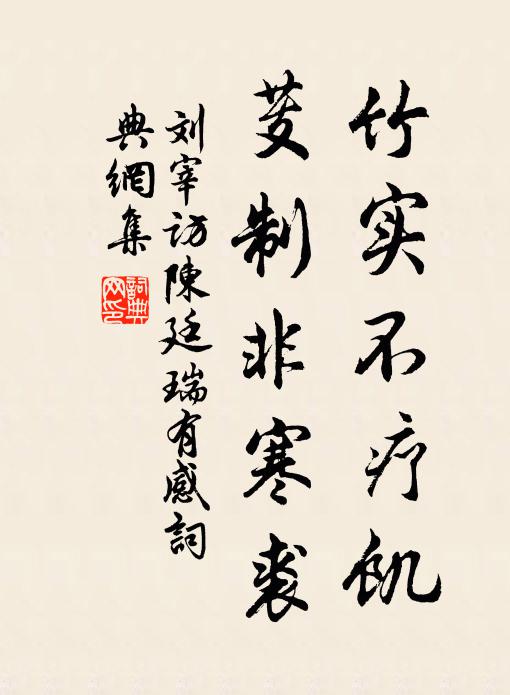 竹实不疗飢
芰制非寒裘
刘宰访陳廷瑞有感詞
典網集
詞典网印